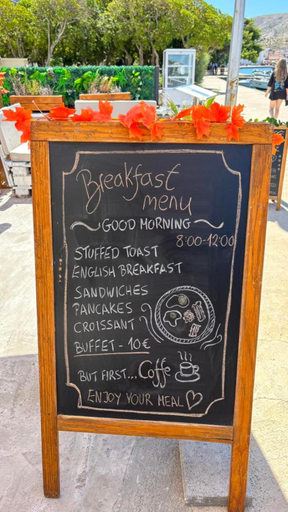 Breakfast
menu
~GOOD MORNING~
8:00-12:00
STUFFED TOAST
ENGLISH BREAKFAST
SANDWICHES
PANCAKES
CROISSANT
BUFFET - 10€
BUT FIRST...Coffe
ENJOY YOUR MEAL